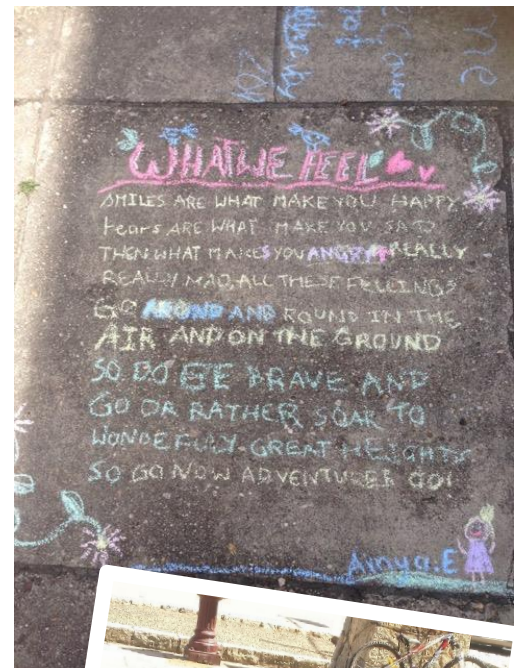 WHAT WE FEEL
SMILES ARE WHAT MAKE YOU HAPPY
tears ARE WHAT MAKE YOU SAD
THEN WHAT MAKES YOU ANGRY REALLY
REALLY MAD, ALL THESE FEELINGS
GO AROUND AND ROUND IN THE
AIR AND ON THE GROUND
SO DO BE BRAVE AND
GO OR RATHER SOAR TO
WONDEFULY GREAT HEIGHTS
SO GO NOW ADVENTURER GO!
Amya.E